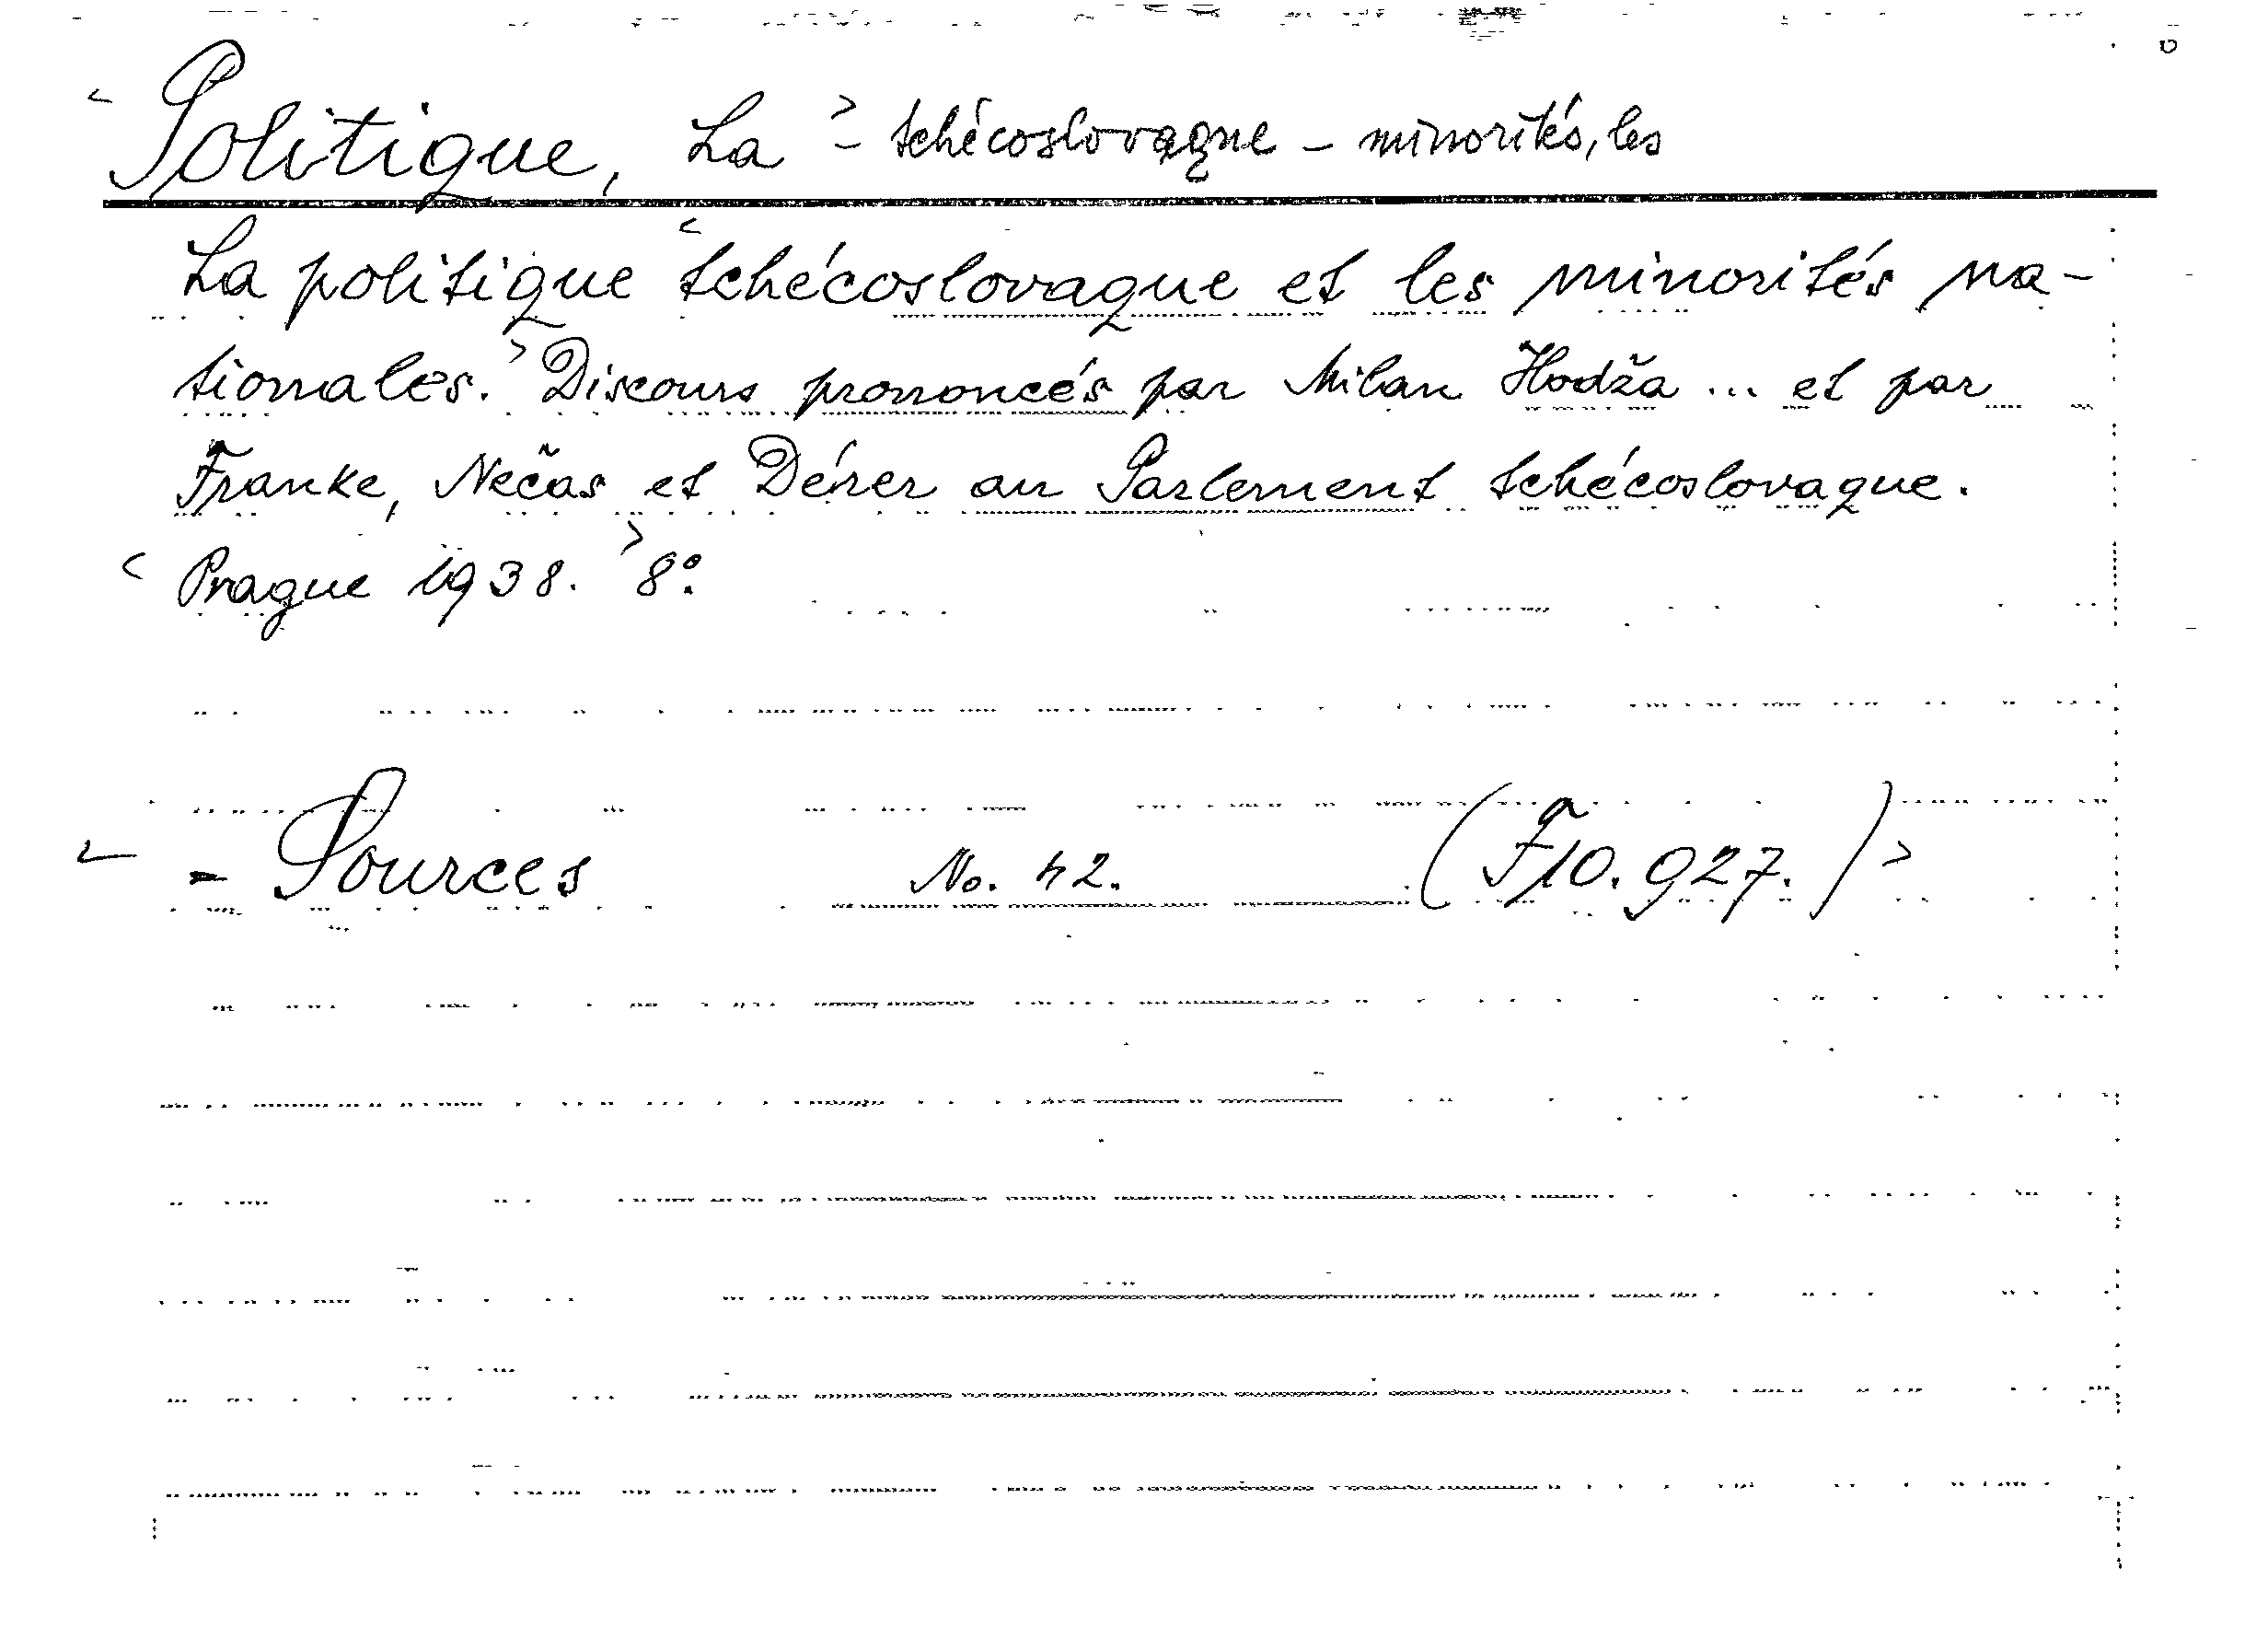 < Politique, La > - tchécoslovaque - minorités, les
La politique < tchécoslovaque et les minorités na-
tionales. > Discours prononcés par Milan Hodža ... et par
Franke, Nečas et Dérer au Parlement tchécoslovaque.
< Prague 1938. > 8°.
< - Sources No. 42. (F 10.927.) >